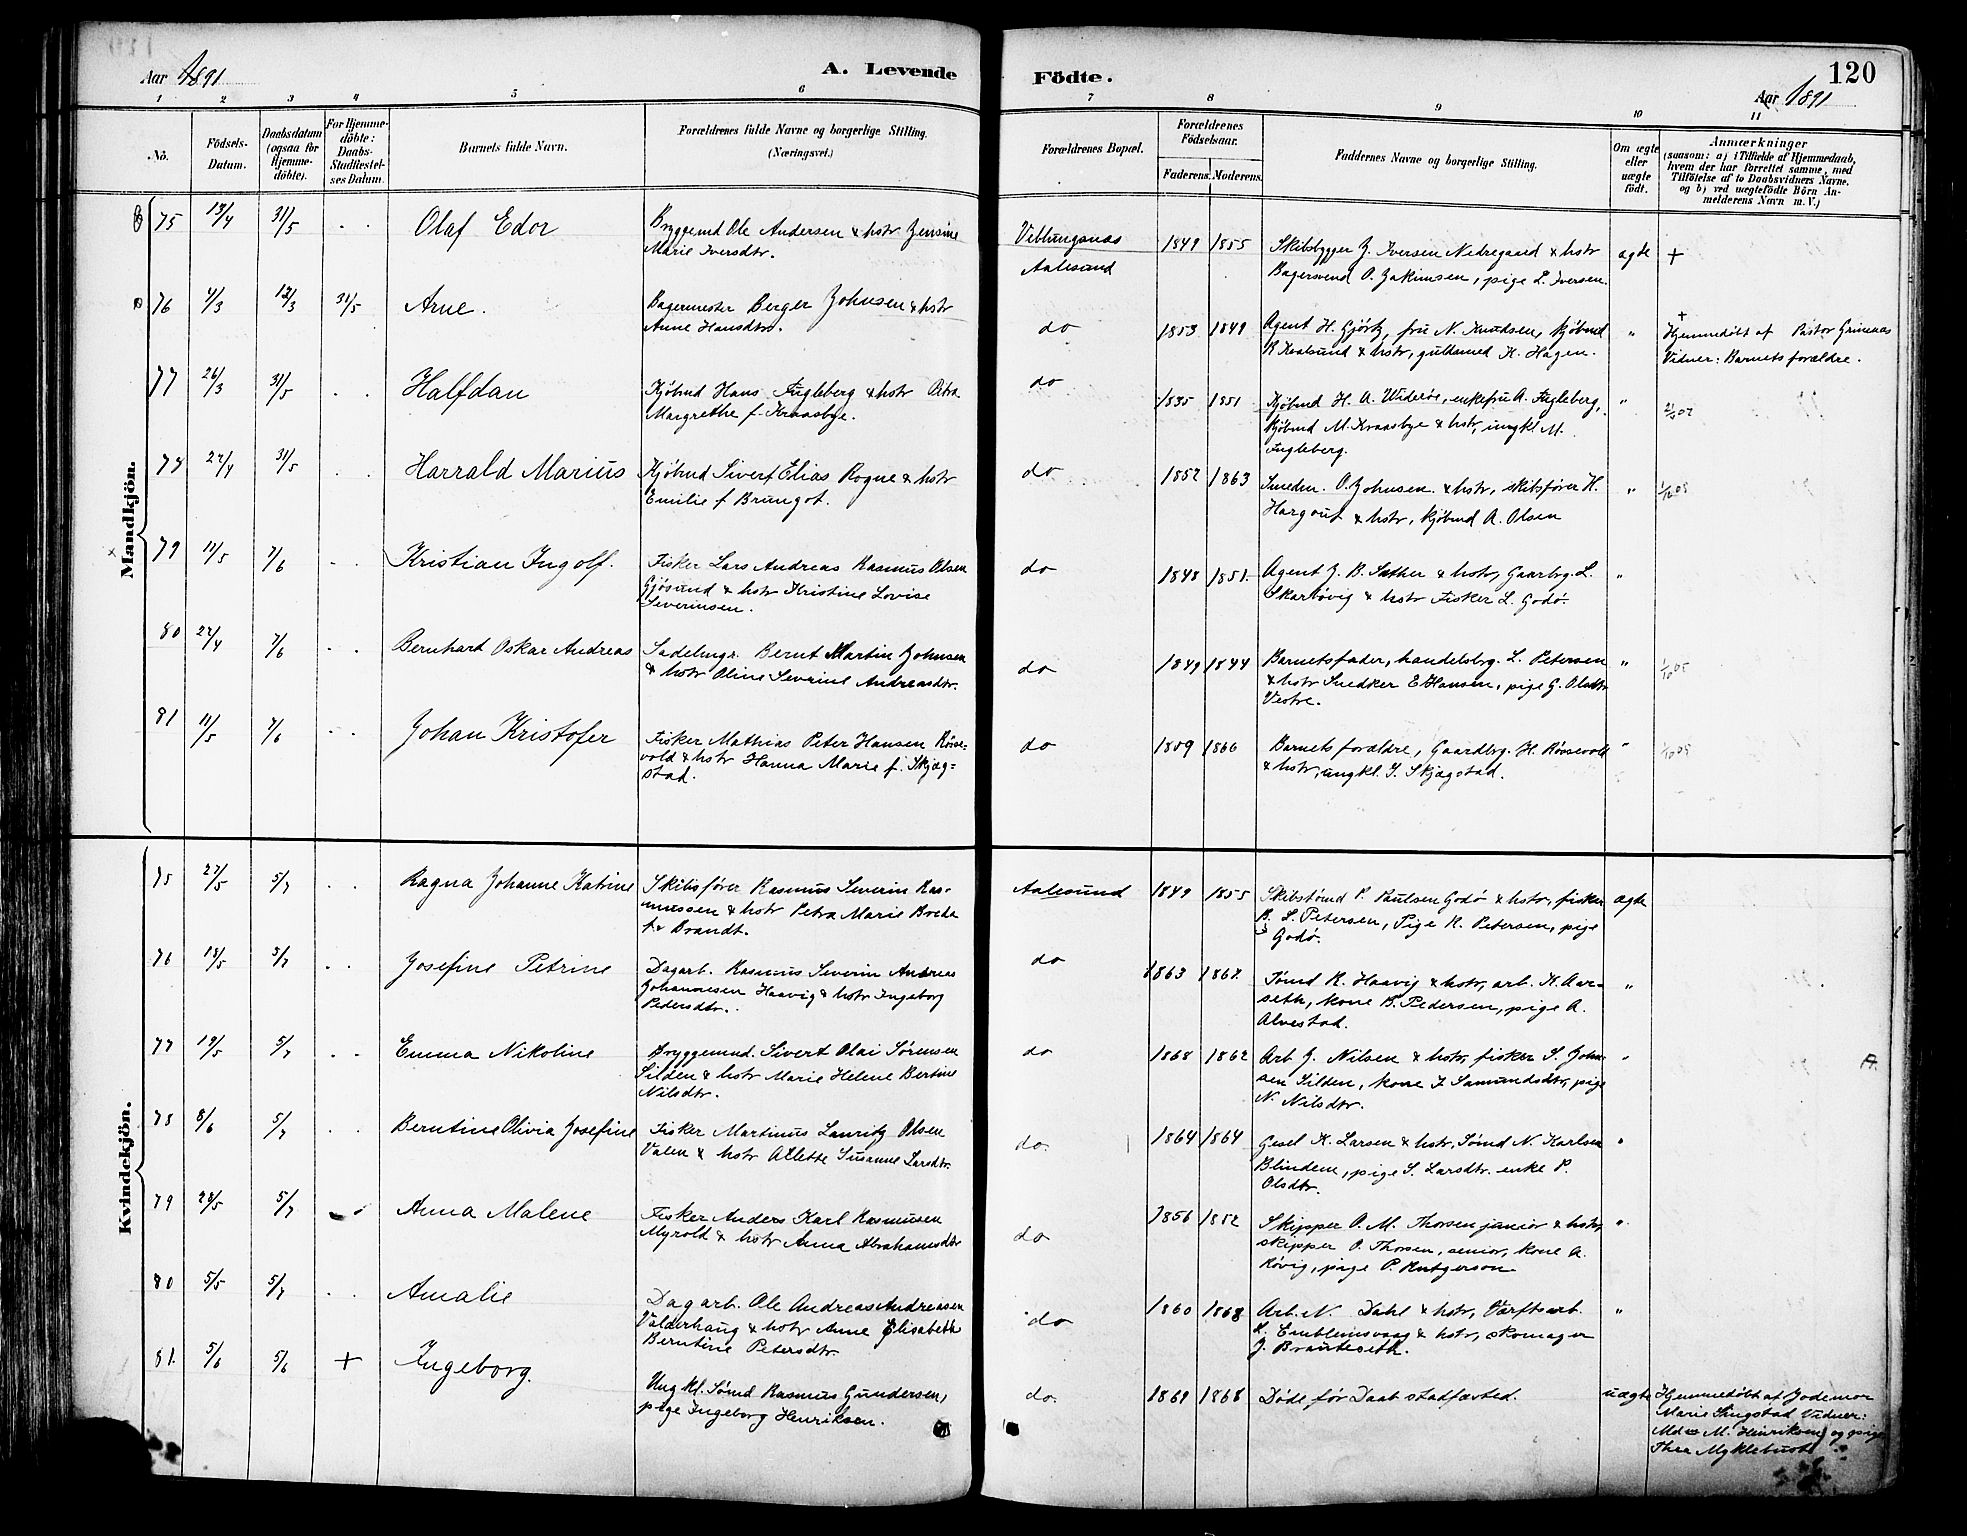 Aar 1891
A. Levende
Födte.
120
Aar 1891
1 2 3 4 5 6 7 8 9 10 11
No.
Födsels-
Datum.
Daabsdatum
(ogsaa for
Hjemme-
döbte).
For Hjemme-
döbte:
Daabs-
Stadfæstel-
ses Datum.
Barnets fulde Navn.
Forældrenes fulde Navne og borgerlige Stilling.
(Næringsvei.)
Forældrenes Bopæl.
Forældrenes
Födselsaar.
Faderens. Moderens.
Faddernes Navne og borgerlige Stilling.
Om ægte
eller
uægte
födt.
Anmærkninger
(saasom: a) i Tilfælde af Hjemmedaab,
hvem der har forrettet samme, med
Tilföielse af to Daabsvidners Navne,
og b) ved uægtefödte Börn An-
melderens Navn m. V.)
Mandkjön.
75 13/4 31/5 Olaf Edor
Bryggemd Ole Andersen & hstr Jensine
Marie Iversdtr.
Veblungsnæs
Aalesund
1849 1855
Skibsbygger J. Iversen Nedregaard & hstr
Bagersvend O. Jakimsen, pige L. Iversen.
ægte +
76 4/3 12/3 31/5 Arne.
Bagermester Berger Johnsen & hstr
Anne Hansdtr.
do 1853 1849
Agent H. Gjörtz, fru N. Knudsen, kjöbmd
R Kvalsund & hstr, guldsmed K. Hagen.
" +
Hjemmedöbt af Pastor Grimnæs
Vidner: Barnets forældre.
77 26/3 31/5 Halfdan
Kjöbmd Hans Fugleberg & hstr Petra
Margrethe f. Kraasbye.
do 1835 1851
Kjöbmd H. A. Wideröe, enkefru A. Fugleberg,
kjöbmd M. Kraasbye & hstr, ungkl M.
Fugleberg.
"
78 27/4 31/5 Harrald Marius
Kjöbmd Sivert Elias Rogne & hstr
Emilie f Brungot.
do 1852 1863
Smedm. O. Johnsen & hstr, skibsförer H.
Hargout & hstr, kjöbmd A. Olsen
"
79 11/5 7/6 Kristian Ingolf.
Fisker Lars Andreas Rasmus Olsen
Gjösund & hstr Kristine Lovise
Severinsen.
do 1848 1851.
Agent J. B. Sæther & hstr, Gaardbrg. L.
Skarbövig & hstr Fisker L. Godö.
"
80 27/4 7/6 Bernhart Oskar Andreas
Sadelmgr. Bernt Martin Johnsen
& hstr Oline Severine Andreasdtr.
do 1849 1844
Barnets fader, handelsbrg. L. Petersen
& hstr Snedker E Hansen, pige G. Olsdtr
Vestre.
"
81 11/5 7/6 Johan Kristofer
Fisker Mathias Peter Hansen Rövse-
vold & hstr Hanna Marie f. Skjæg-
stad.
do 1859 1866
Barnets forældre, Gaardbrg. H. Rövsevold
& hstr, ungkl. J. Skjægstad.
"
Kvindekjön.
75 27/5 5/7 Ragna Johanne Katrine
Skibsförer Rasmus Severin Ras-
mussen & hstr Petra Marie Breda
f. Brandt.
Aalesund 1849 1855
Skibstömd P. Paulsen Godö & hstr, fisker
B. L. Petersen, Pige R. Petersen, pige
Godö.
ægte
76 13/5 5/7 Josefine Petrine
Dagarb. Rasmus Severin Andreas
Johannesen Haavig & hstr Ingeborg
Pedersdtr.
do 1863 1867.
Tömd R. Haavig & hstr, arb. K. Aar-
seth, kone B. Pedersen, pige A.
Alvestad.
"
77 19/5 5/7 Emma Nikoline
Bryggemd. Sivert Olai Sörensen
Silden & hstr Marie Helene Bertine
Nilsdtr.
do 1868 1862
Arb J. Nilsen & hstr, fisker S. John-
sen Silden, kone I Samundsdtr, pige
N. Nilsdtr.
"
78 8/6 5/7 Berntine Olivia Josefine
Fisker Martinus Lauritz Olsen
Valen & hstr Allette Susanne Larsdtr.
do. 1864 1864
Gesel K. Larsen & hstr, Tömd N. Karlsen
Blindem, pige S. Larsdtr. enke P.
Olsdtr.
"
79 28/5 5/7 Anna Malene
Fisker Anders Karl Rasmusen
Myrold & hstr Anna Abrahamsdtr
do 1856 1852
Skipper O. M. Thorsen junior & hstr,
skipper O. Thorsen, senior, kone A.
Rövig, pige P. Rutgerson
"
80 5/5 5/7 Amalie
Dagarb. Ole Andreas Andreasen
Valderhaug & hstr Anne Elisabeth
Berntine Petersdtr.
do 1860 1868
Arb. N. Dahl & hstr, Værftsarb.
L. Emblemsvaag & hstr, skomager
J. Brauteseth.
"
81. 5/6 5/6 + Ingeborg.
Ung kl. Tömd Rasmus Gundersen,
pige Ingeborg Henriksen.
do. 1869 1868
Döde för Daab stadfæsted.
uægte
Hjemmedöbt af Jodemor
Marie Singstad Vidner:
Mdm M. Henriksen og pige
Thea Myklebust